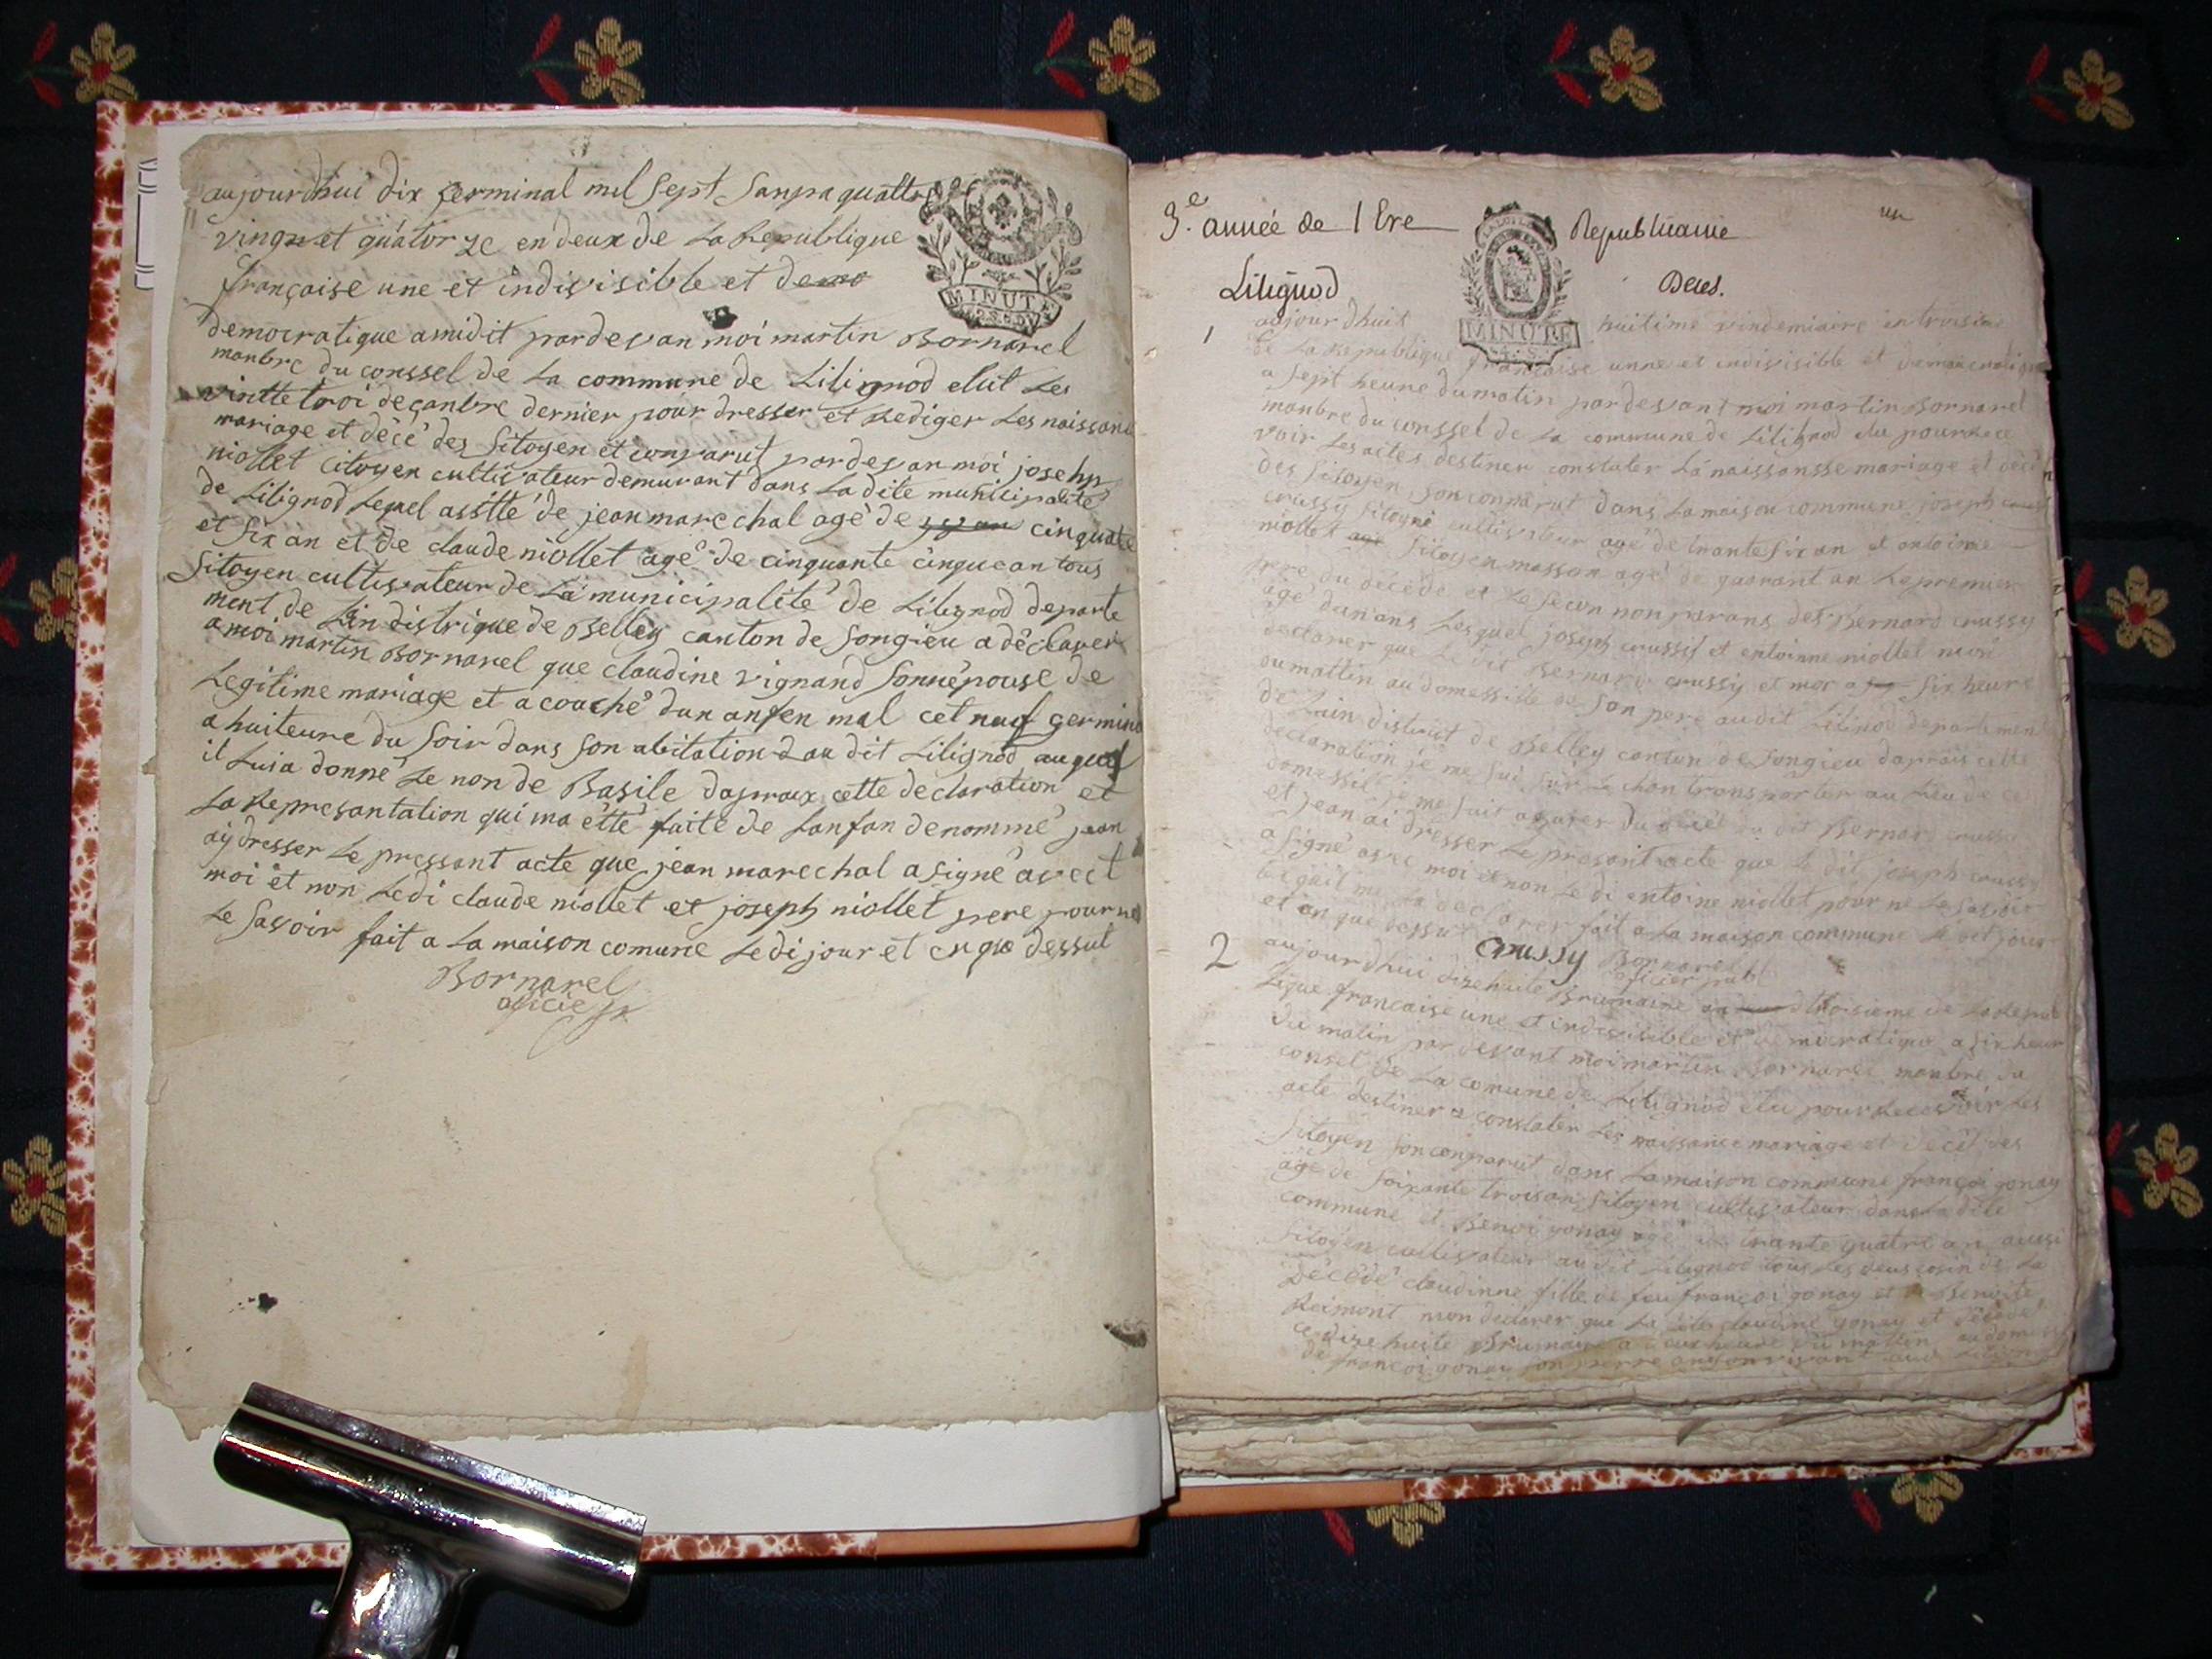 aujourdhui dix germinal mil sept sanpra quattre
vingn et quator ze en deux de La Republique
françaisse une et indivisible et demo
MINUTE
democratique a midit pardevan moi martin Bornarel
manbre du conssel de La commune de Lilignod elut Les
vintte troi deçanbre dernier pour dresser et Rediger Les naissans
mariage et décé des Sitoyen et conparut pardevan moi josehp
niollet Citoyen cultivateur demurant dans La dite municipalité
de Lilignod Lequel assîtté de jean marechal agé de cinquate
et six an et de claude niollet agé de cinquante cinque an tous
Sitoyen cultivateur de La municipalité de Lilignod departe
ment de Lain distrique de Belley canton de songieu a déclarer
a moi martin Bornarel que claudine vignand sonnépouse de
Legitime mariage et a couché dun anfen mal cet neuf germina
a huiteure du soir dans son abitation audit Lilignod auquel
il Luia donné Le non de Basile dapraix cette declaration et
La Represantation qui ma étté faite de Lanfan denommé jean
aiy dresser Le pressant acte que jean marechal a signé avect
moi et non Ledi claude niollet et joseph niollet pere pour ne
Le savoir fait a La maison comune Ledi jour et en que dessut
Bornarel
oficie
3.e année de l Ere Republicaine
un
Lilignod Deces.
MINUTE
1 aujourdhuit huitime vindemiaire en troisime
de La Republique francaise unne et indivisible et democratique
a sept heure du matin pardevant moi martin Bornarel
manbre du conssel de La commune de Lilignod elu pour Rece
voir Les actes destiner constater La naissansse mariage et décé
des sitoyen son conparut dans La maison commune joseph
crussy sitoyne cultivateur agé de trante six an et antoine
niollet sitoyen masson agé de quarant an Le premier
pere du décédé et Le secon non parans des Bernard crussy
agé dun ans Lesquel joseph crussy et entoinne niollet mon
declarer que Le dit Bernard crussy et mor a six heure
du mattin au domessille de son pere audit Lilignod departement
de Lain district de Belley canton de songieu daprais cette
declaration je me sui sur Le chan transporter au Lieu de ce
domessille je me suit assurer du décét du dit Bernard crussy
et jean ai dresser Le presant acte que Le dit joseph crussy
a signé avec moi et non Le di entoine niollet pour ne Le savoir
declarer fait a La maison commune Le dit jour
et an que dessu
Crussy Bornarel
oficier publ
2 aujourdhui dizehuite Brumaire an troisieme de La Repub
Lique francaise une et indivisible et democratique a six heur
du matin par devant moi martin Bornarel manbre du
consel de La comune de Lilignod elu pour Recevoir Les
acte destiner a constater Les naissanse mariage et décét des
sitoyen son conparut dans La maison commune françoi gonay
agé de soixante trois an sitoyen cultivateur dans La dite
commune et Benoi gonay agé de trante quatre an aussi
sitoyen cultivateur audit Lilignod tous Les deus cosin de La
décédé claudinne fille de feu françoi gonay et de Benoite
Reimont mon declarer que La dite claudine gonay et décédé
ce dize huite Brumaire a heure du mattin au domis
de françoi gonay son